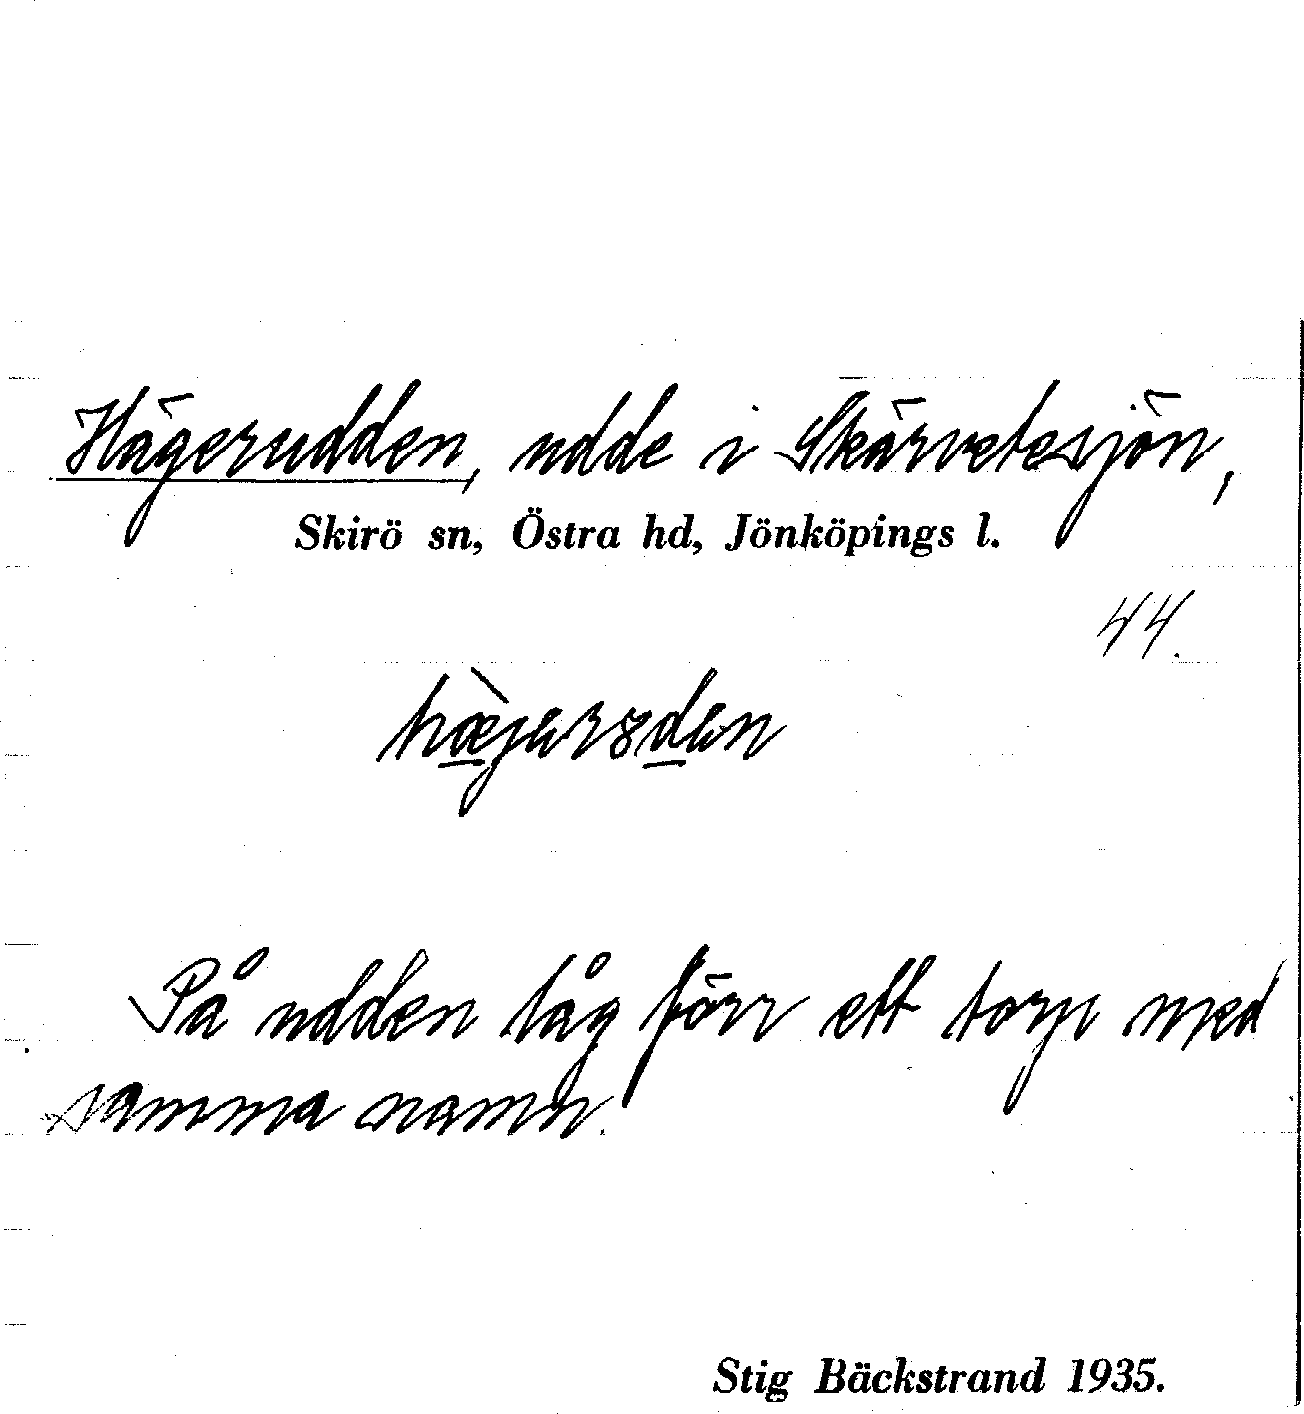 Hägerudden, udde i Skärvetesjön,
Skirö sn, Östra hd, Jönköpings l.
44.
På udden låg förr ett torp med
samma namn.
Stig Bäckstrand 1935.